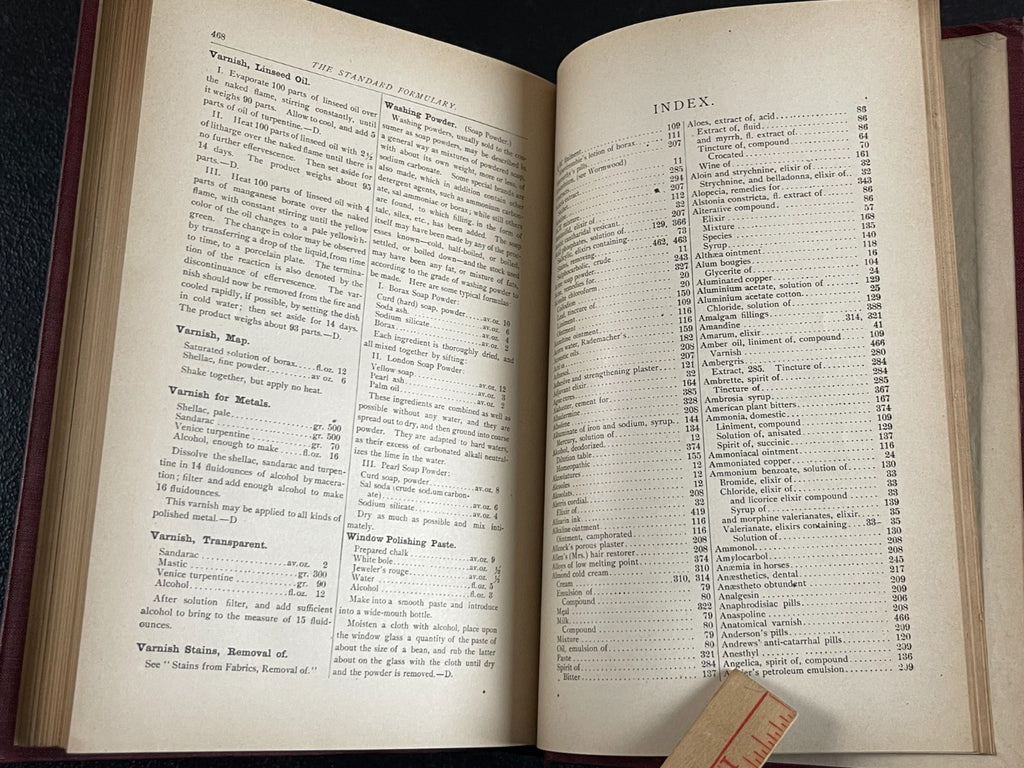 468
THE STANDARD FORMULARY.
Varnish, Linseed Oil.
I. Evaporate 100 parts of linseed oil over
the naked flame, stirring constantly, until
it weighs 90 parts. Allow to cool, and add 5
parts of oil of turpentine.—D.
II. Heat 100 parts of linseed oil with 2½
of litharge over the naked flame until there is
no further effervescence. Then set aside for
14 days. The product weighs about 95
parts.—D.
III. Heat 100 parts of linseed oil with 4
parts of manganese borate over the naked
flame, with constant stirring until the yellow
color of the oil changes to a pale yellowish-
green. The change in color may be observed
by transferring a drop of the liquid, from time
to time, to a porcelain plate. The termina-
tion of the reaction is also denoted by the
discontinuance of effervescence. The var-
nish should now be removed from the fire and
cooled rapidly, if possible, by setting the dish
in cold water; then set aside for 14 days.
The product weighs about 93 parts.—D.
Varnish, Map.
Saturated solution of borax....fl.oz. 12
Shellac, fine powder............av oz. 6
Shake together, but apply no heat.
Varnish for Metals.
Shellac, pale....................gr. 500
Sandarac.......................gr. 500
Venice turpentine...............gr. 70
Alcohol, enough to make......fl.oz. 16
Dissolve the shellac, sandarac and turpen-
tine in 14 fluidounces of alcohol by macera-
tion; filter and add enough alcohol to make
16 fluidounces.
This varnish may be applied to all kinds of
polished metal.—D
Varnish, Transparent.
Sandarac....................av.oz. 2
Mastic.......................gr. 300
Venice turpentine..............gr. 90
Alcohol.......................fl.oz. 12
After solution filter, and add sufficient
alcohol to bring to the measure of 15 fluid-
ounces.
Varnish Stains, Removal of.
See "Stains from Fabrics, Removal of."
Washing Powder. (Soap Powder.)
Washing powders, usually sold to the con-
sumer as soap powders, may be described in
a general way as mixtures of powdered soap,
with about its own weight, more or less, of
sodium carbonate. Some special brands are
also made, which in addition contain other
detergent agents, such as ammonium carbon-
ate, sal ammoniac or borax; while still others
are found, to which filling, in the form of
talc, silex, etc., has been added. The soap
itself may have been made by any of the proc-
esses known—cold, half-boiled, or boiled,
settled, or boiled down—and the stock used
may have been any fat, or mixture of fats,
according to the grade of washing powder to
be made. Here are some typical formulas:
I. Borax Soap Powder:
Curd (hard) soap, powder......av.oz. 10
Soda ash........................av.oz. 6
Sodium silicate.................av.oz. 4
Borax..........................av.oz. 2
Each ingredient is thoroughly dried, and
all mixed together by sifting:
II. London Soap Powder:
Yellow soap....................av.oz. 12
Pearl ash.......................av.oz. 3
Palm oil........................av.oz. 2
These ingredients are combined as well as
possible without any water, and they are
spread out to dry, and then ground into coarse
powder. They are adapted to hard waters,
as their excess of carbonated alkali neutral-
izes the lime in the water.
III. Pearl Soap Powder:
Curd soap, powder............av.oz. 8
Sal soda (crude sodium carbon-
ate)..........................av.oz. 6
Sodium silicate................av.oz. 4
Dry as much as possible and mix inti-
mately.
Window Polishing Paste.
Prepared chalk...............av.oz. 9
White bole...................av.oz. ½
Jeweler's rouge...............av.oz. ½
Water.........................fl.oz. 5
Alcohol.......................fl.oz. 3
Make into a smooth paste and introduce
into a wide-mouth bottle.
Moisten a cloth with alcohol, place upon
the window glass a quantity of the paste of
about the size of a bean, and rub the latter
about on the glass with the cloth until dry
and the powder is removed.—D.
INDEX.
109
lotion of borax 111
pills 207
(see Wormwood)
11
285
294
207
112
32
elixir of 207
cantharidal vesicant 129, 366
solution of 73
elixirs containing 462, 463
removing 11
crude 243
soap powder 327
remedies for 20
chloroform 20
150
tincture of 109
Liniment 116
116
ointment 159
water, Rademacher's 182
oils 208
207
Adhesive and strengthening plaster 121
elixir 32
164
cement for 385
328
208
Albuminate of iron and sodium, syrup 144
Mercury, solution of 134
Alcohol, deodorized 12
Dilution table 374
Homeopathic 155
12
12
12
cordial 208
Elixir of 32
Alizarin ink 419
Alkaline ointment 116
Ointment, camphorated 116
Allcock's porous plaster 208
Allen's (Mrs.) hair restorer 208
Alloys of low melting point 374
Almond cold cream 310
Cream 310, 314
Emulsion of 79
Compound 80
Meal 322
Milk 79
Compound 80
Mixture 79
Oil, emulsion of 80
Paste 321
Spirit of 284
Bitter 137
Aloes, extract of, acid 83
Extract of, fluid 86
and myrrh, fl. extract of 86
Tincture of, compound 64
Crocated 70
Wine of 161
Aloin and strychnine, elixir of 32
Strychnine, and belladonna, elixir of 32
Alopecia, remedies for 343
Alstonia constricta, fl. extract of 86
Alterative compound 57
Elixir 168
Mixture 135
Species 140
Syrup 118
Althæa ointment 16
Alum bougies 104
Glycerite of 24
Aluminated copper 129
Aluminium acetate, solution of 25
Aluminium acetate cotton 129
Chloride, solution of 388
Amalgam fillings 314, 321
Amandine 41
Amarum, elixir 109
Amber oil, liniment of, compound 466
Varnish 280
Ambergris 284
Extract, 285. Tincture of 285
Ambrette, spirit of 367
Tincture of 167
Ambrosia syrup 374
American plant bitters 109
Ammonia, domestic 129
Liniment, compound 137
Solution of, anisated 116
Spirit of, succinic 24
Ammoniacal ointment 130
Ammoniated copper 33
Ammonium benzoate, solution of 33
Bromide, elixir of 33
Chloride, elixir of 139
and licorice elixir compound 35
Syrup of 35
and morphine valerianates, elixir 130
Valerianate, elixirs containing 33– 208
Solution of 208
Ammonol 245
Amylocarbol 217
Anæmia in horses 209
Anæsthetics, dental 209
Anæstheto obtundent 206
Analgesin 208
Anaphrodisiac pills 466
Anaspoline 209
Anatomical varnish 120
Anderson's pills
Andrews' anti-catarrhal pills
Anesthyl 209
Angelica, spirit of, compound 136
petroleum emulsion 209